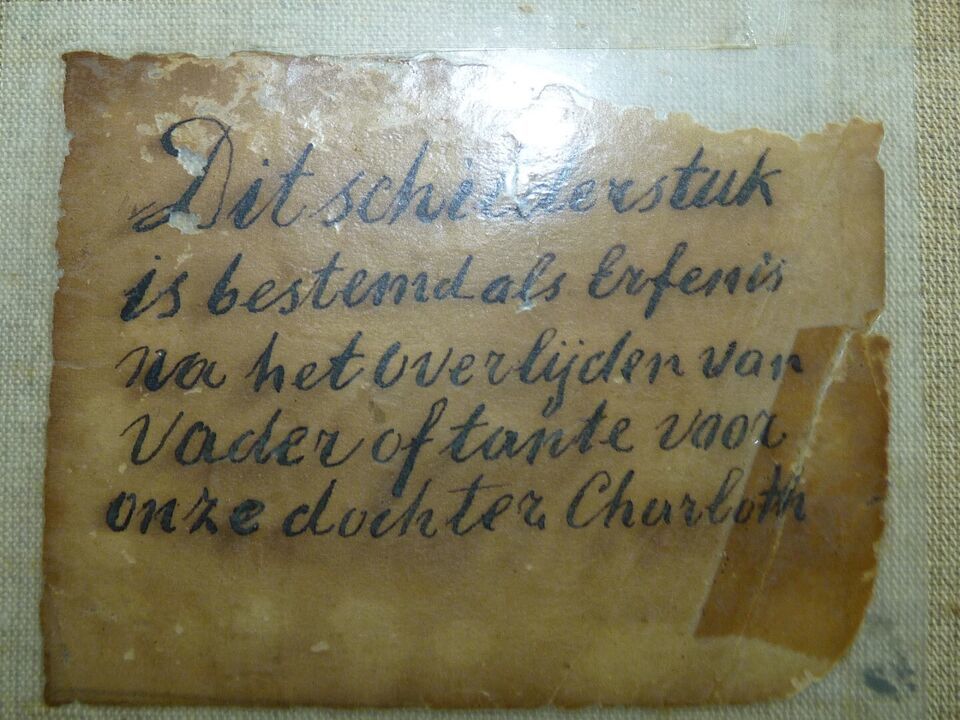 Dit schilderstuk
is bestemd als Erfenis
na het overlijden van
Vader of tante voor
onze dochter Charloth